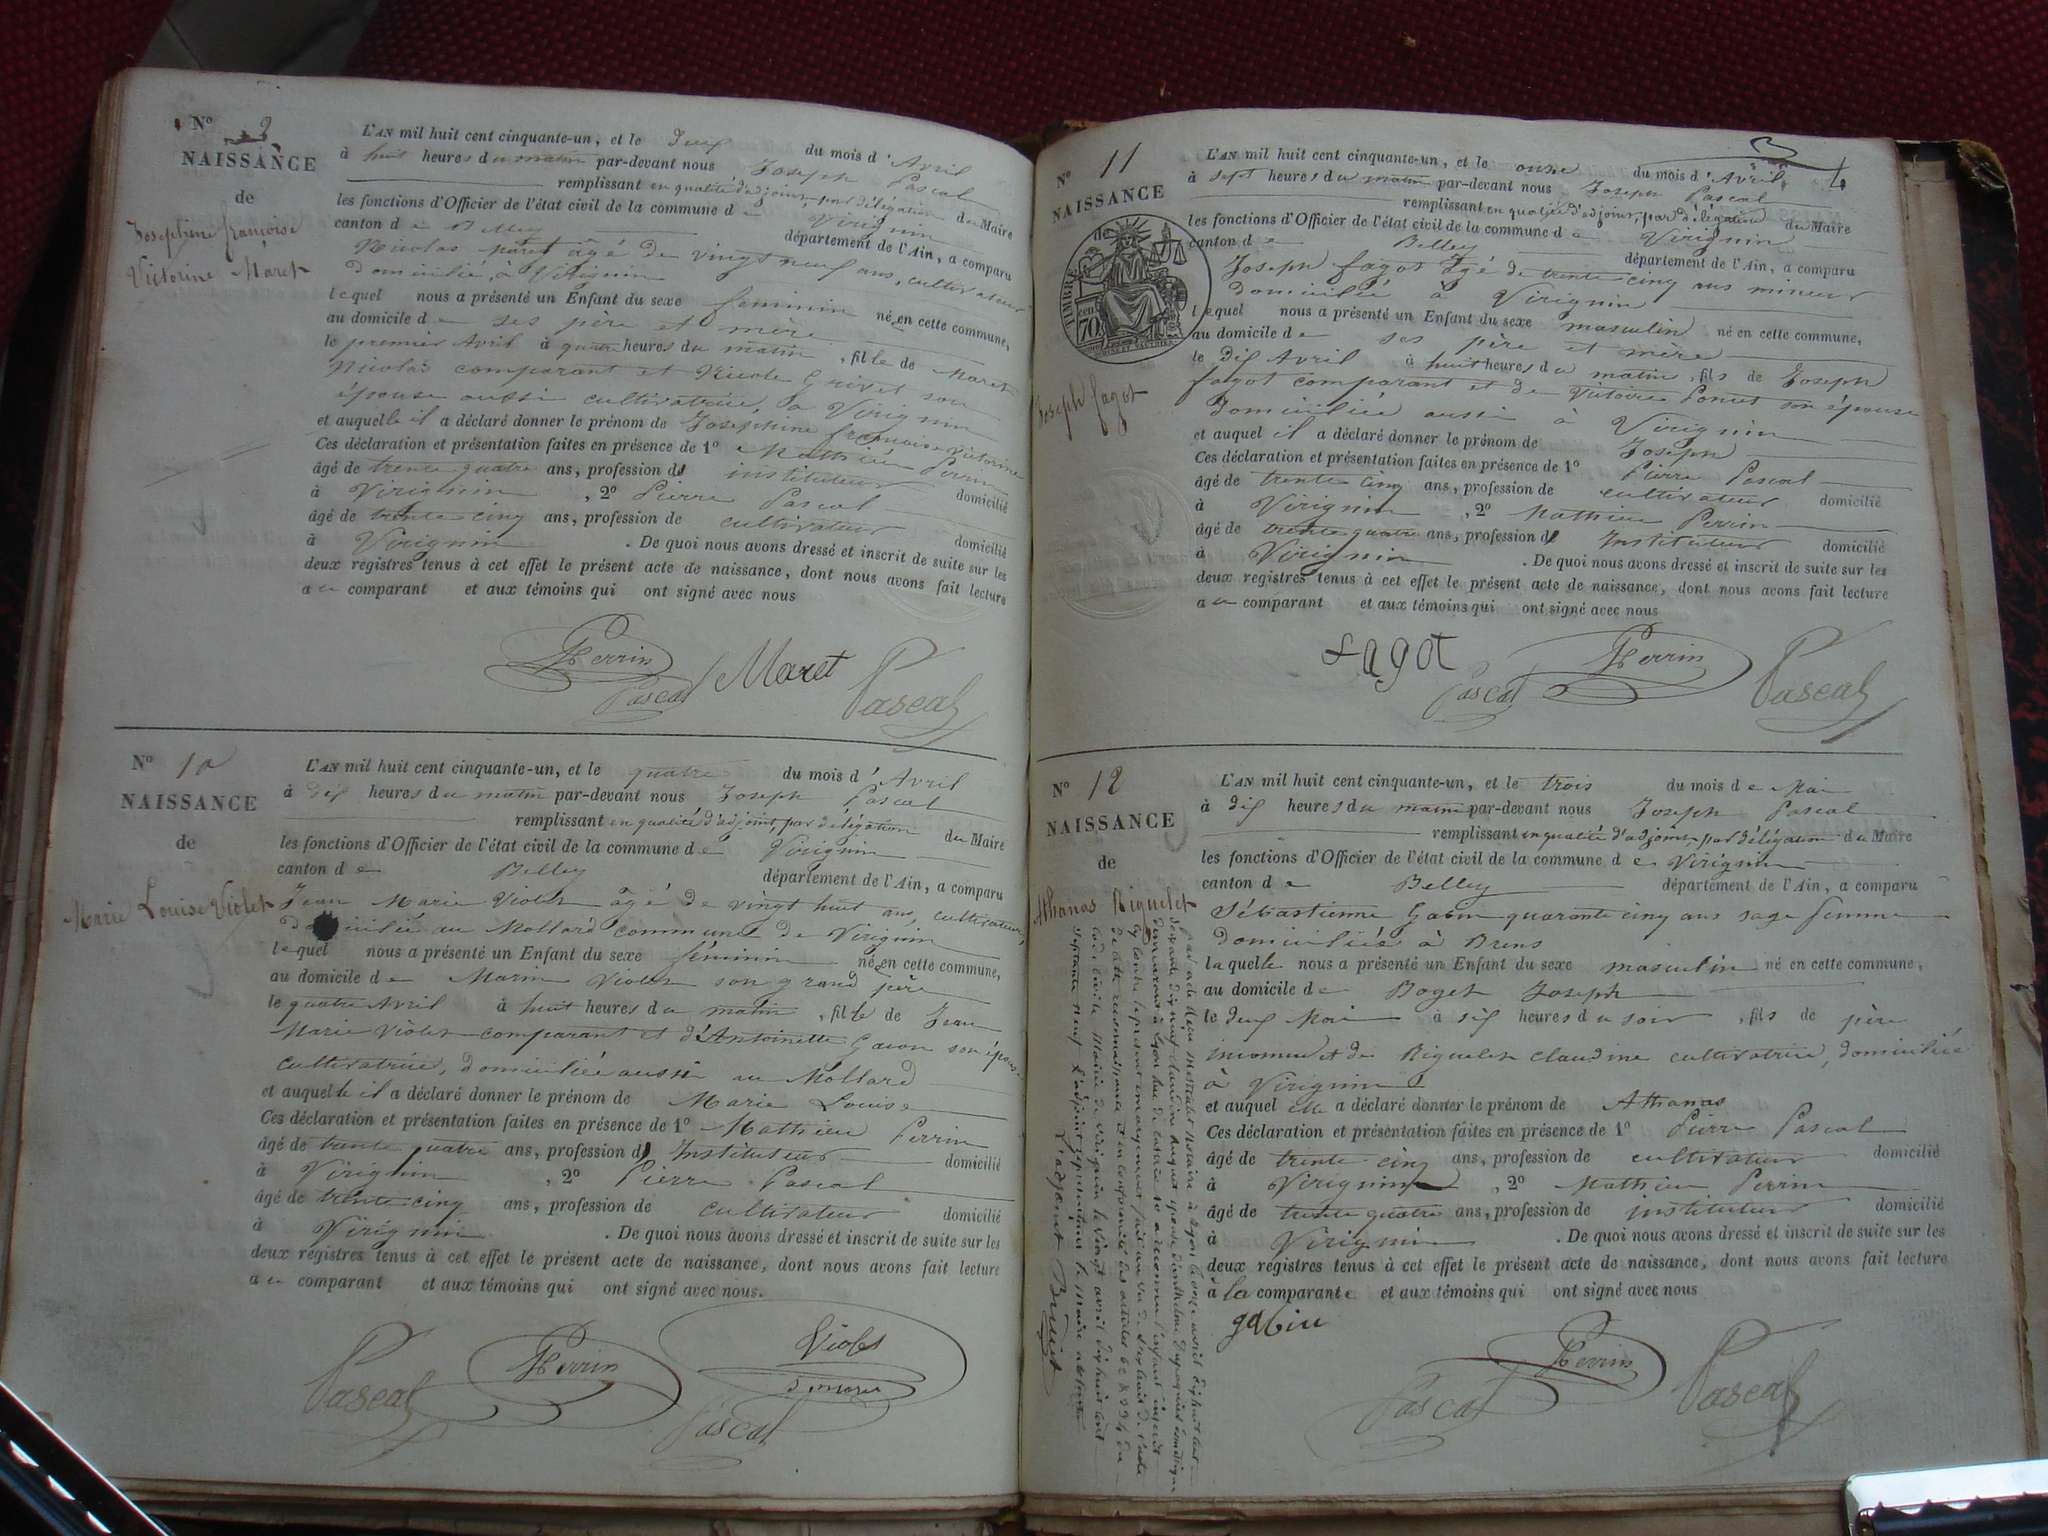 N° 9
NAISSANCE
de
Josephine françoise
Victorine Maret
L'AN mil huit cent cinquante-un, et le Deux du mois d'Avril
à huit heures du matin par-devant nous Joseph Pascal
remplissant en qualité d'adjoint, par délégation du Maire
les fonctions d'Officier de l'état civil de la commune de Virignin
canton de Belley département de l'Ain, a comparu
Nicolas maret âgé de vingt neuf ans, cultivateur
domicilié à Virignin
lequel nous a présenté un Enfant du sexe feminin né en cette commune,
au domicile de ses père et mère
le premier Avril à quatre heures du matin, fille de Maret
Nicolas comparant et Nicole Grivet son
épouse aussi cultivatrice, à Virignin
et auquelle il a déclaré donner le prénom de Josephine françoise Victorine
Ces déclaration et présentation faites en présence de 1° Mathieu Perrin
âgé de trente quatre ans, profession d' instituteur domicilié
à Virignin, 2° Pierre Pascal
âgé de trente cinq ans, profession de cultivateur domicilié
à Virignin. De quoi nous avons dressé et inscrit de suite sur les
deux registres tenus à cet effet le présent acte de naissance, dont nous avons fait lecture
au comparant et aux témoins qui ont signé avec nous
Perrin
Pascal Maret Pascal
N° 10
NAISSANCE
de
Marie Louise Violet
L'AN mil huit cent cinquante-un, et le quatre du mois d'Avril
à dix heures du matin par-devant nous Joseph Pascal
remplissant en qualité d'adjoint, par délégation du Maire
les fonctions d'Officier de l'état civil de la commune de Virignin
canton de Belley département de l'Ain, a comparu
Jean Marie Violet âgé de vingt huit ans, cultivateur,
domicilié au Mollard commune de Virignin
lequel nous a présenté un Enfant du sexe féminin né en cette commune,
au domicile de Marin Violet son grand père
le quatre Avril à huit heures du matin, fille de Jean
Marie Violet comparant et d'Antoinette son épouse
cultivatrice, domiciliée aussi au Mollard
et auquelle il a déclaré donner le prénom de Marie Louise
Ces déclaration et présentation faites en présence de 1° Mathieu Perrin
âgé de trente quatre ans, profession d' Instituteur domicilié
à Virignin, 2° Pierre Pascal
âgé de trente cinq ans, profession de cultivateur domicilié
à Virignin. De quoi nous avons dressé et inscrit de suite sur les
deux registres tenus à cet effet le présent acte de naissance, dont nous avons fait lecture
au comparant et aux témoins qui ont signé avec nous.
Pascal Perrin Violet
Pascal
N° 11
NAISSANCE
de
TIMBRE
70
Joseph fagot
L'AN mil huit cent cinquante-un, et le onze du mois d'Avril
à sept heures du matin par-devant nous Joseph Pascal
remplissant en qualité d'adjoint, par délégation du Maire
les fonctions d'Officier de l'état civil de la commune de Virignin
canton de Belley département de l'Ain, a comparu
Joseph fagot âgé de trente cinq ans mineur
domicilié à Virignin
lequel nous a présenté un Enfant du sexe masculin né en cette commune,
au domicile de ses père et mère
le dix Avril à huit heures du matin, fils de Joseph
fagot comparant et de Victoire son épouse
Domiciliée aussi à Virignin
et auquel il a déclaré donner le prénom de Joseph
Ces déclaration et présentation faites en présence de 1° Pierre Pascal
âgé de trente cinq ans, profession de cultivateur domicilié
à Virignin, 2° Mathieu Perrin
âgé de trente quatre ans, profession d' Instituteur domicilié
à Virignin. De quoi nous avons dressé et inscrit de suite sur les
deux registres tenus à cet effet le présent acte de naissance, dont nous avons fait lecture
au comparant et aux témoins qui ont signé avec nous
Fagot Perrin
Pascal Pascal
N° 12
NAISSANCE
de
Athanas Riquelet
L'adjoint
L'AN mil huit cent cinquante-un, et le trois du mois de Mai
à dix heures du matin par-devant nous Joseph Pascal
remplissant en qualité d'adjoint, par délégation du Maire
les fonctions d'Officier de l'état civil de la commune de Virignin
canton de Belley département de l'Ain, a comparu
Sébastienne Gabin quarante cinq ans sage femme
domiciliée à Brens
laquelle nous a présenté un Enfant du sexe masculin né en cette commune,
au domicile de Boget Joseph
le deux Mai à six heures du soir, fils de père
inconnu et de Riquelet Claudine cultivatrice, domiciliée
à Virignin
et auquel elle a déclaré donner le prénom de Athanas
Ces déclaration et présentation faites en présence de 1° Pierre Pascal
âgé de trente cinq ans, profession de cultivateur domicilié
à Virignin, 2° Mathieu Perrin
âgé de trente quatre ans, profession d' instituteur domicilié
à Virignin. De quoi nous avons dressé et inscrit de suite sur les
deux registres tenus à cet effet le présent acte de naissance, dont nous avons fait lecture
à la comparante et aux témoins qui ont signé avec nous
gabin
Perrin
Pascal Pascal